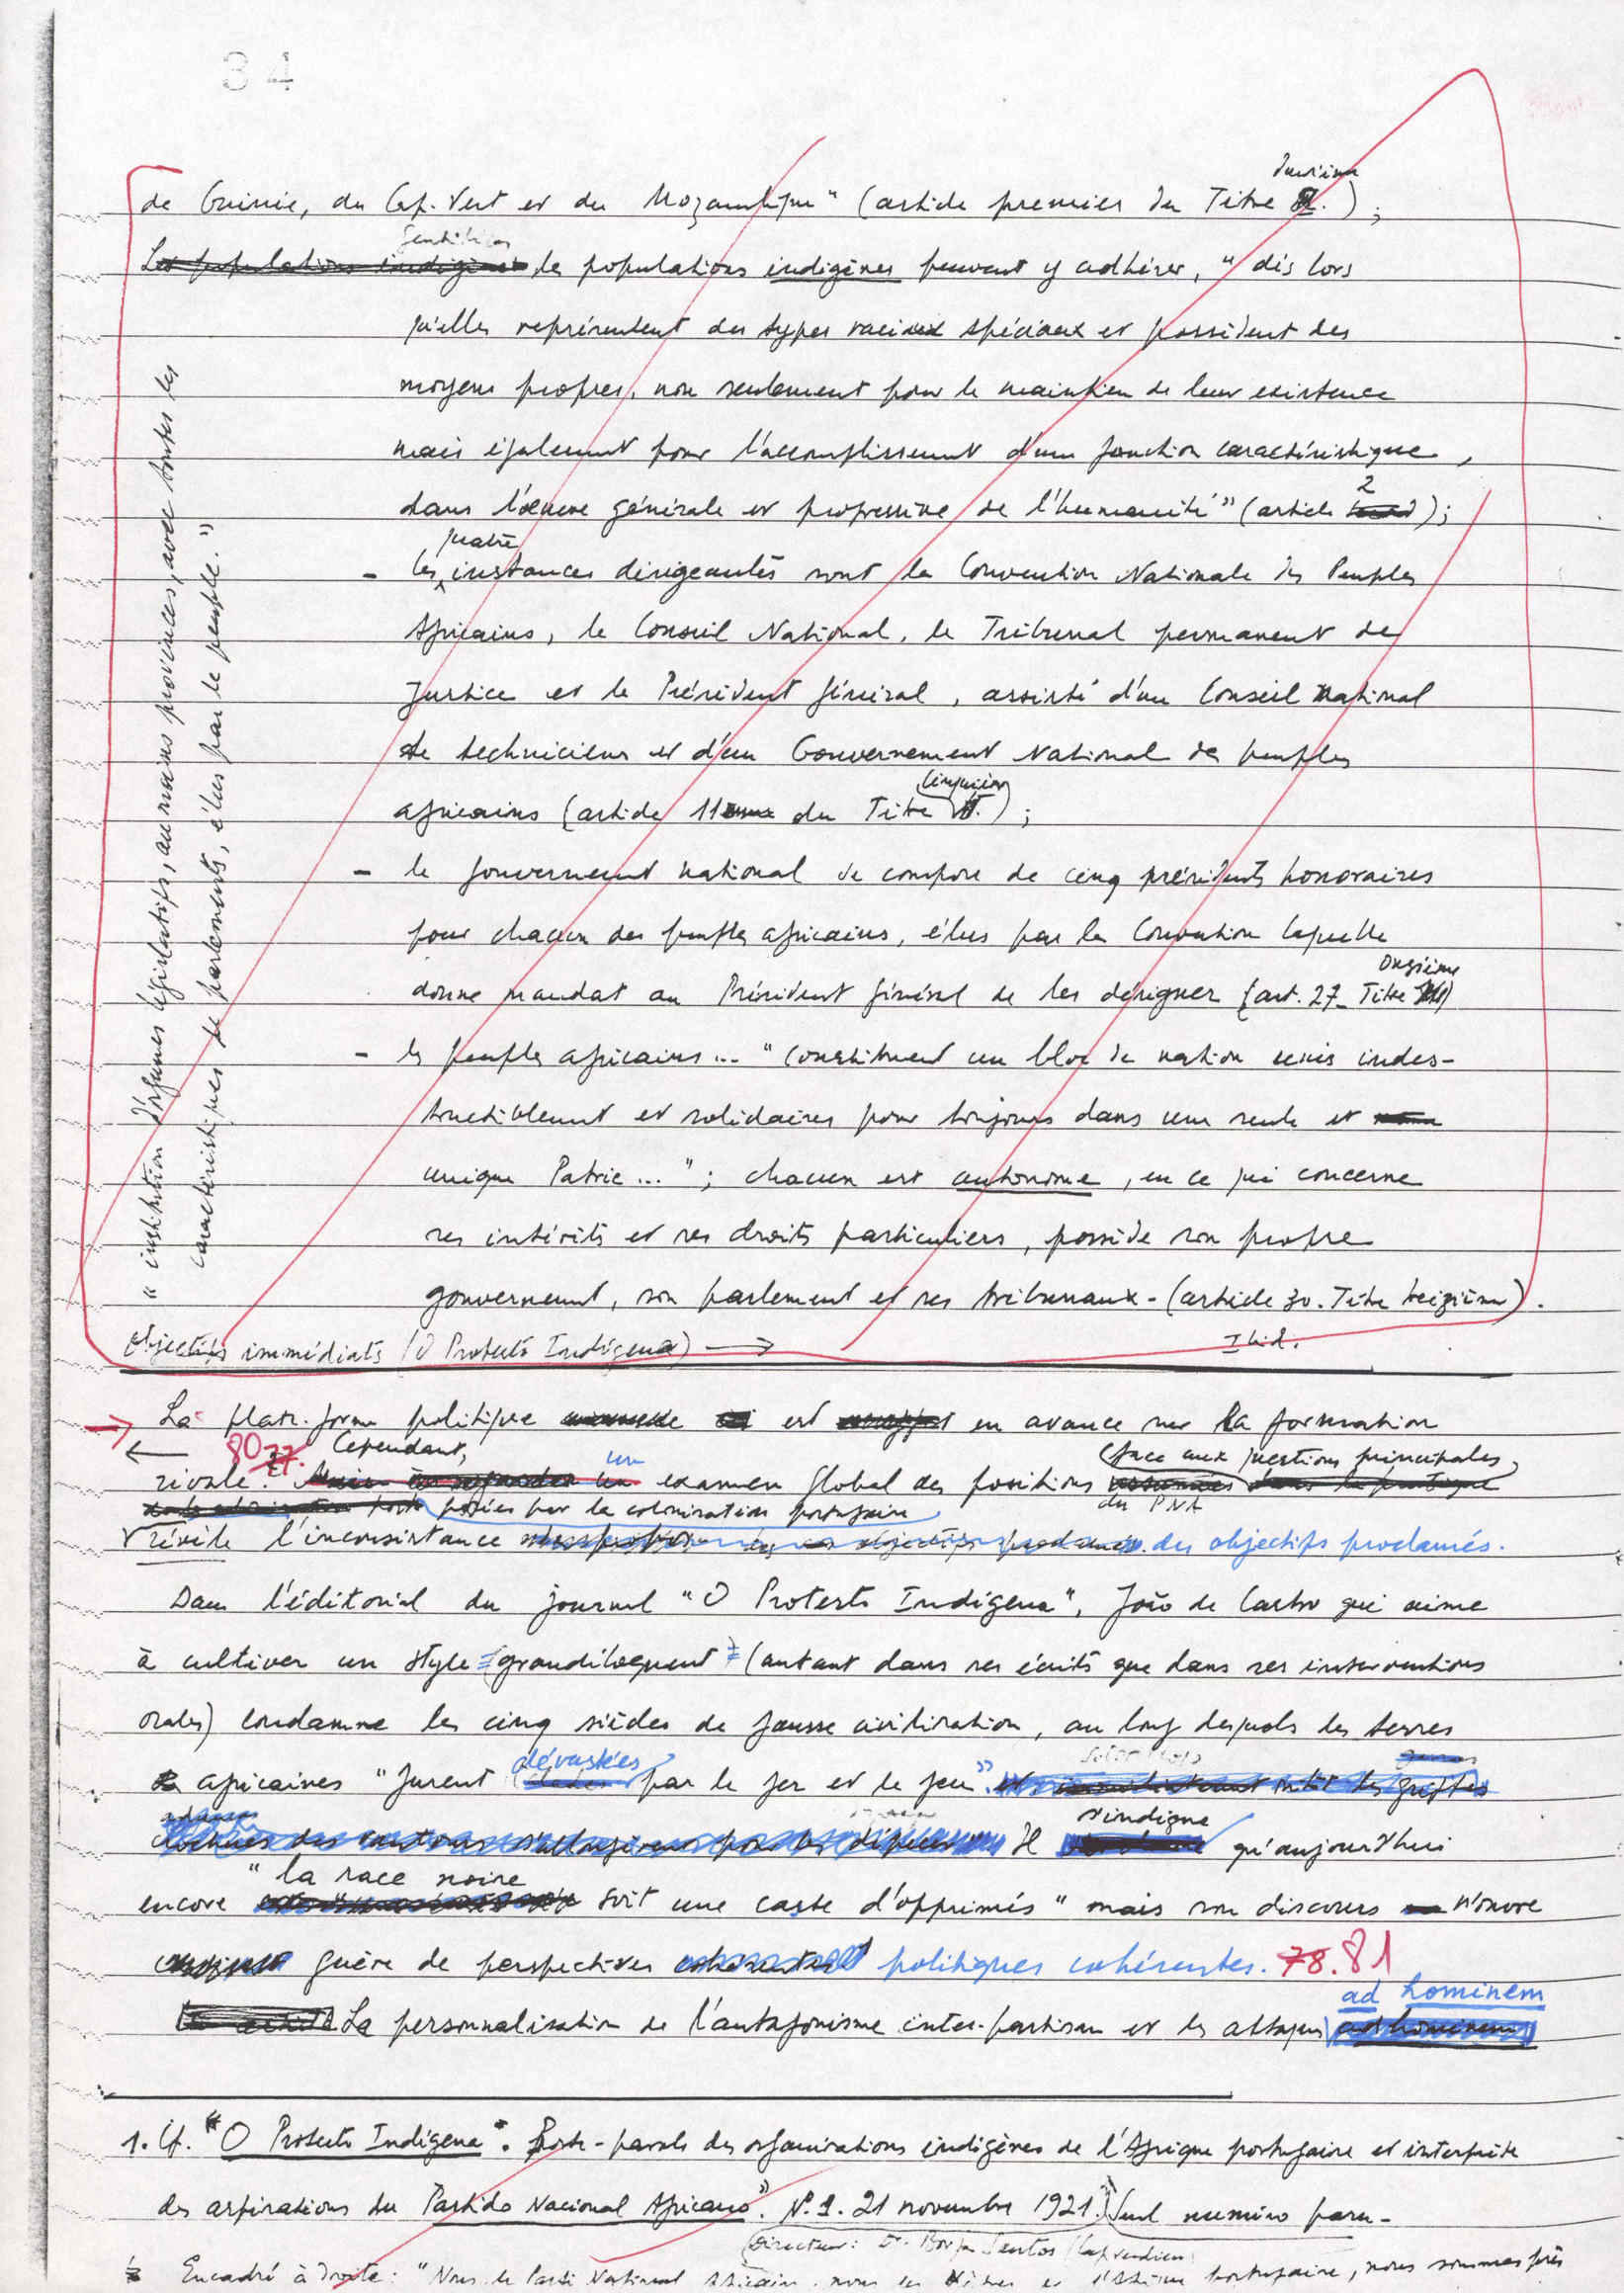 34
deuxième
de Guinée, du Cap-Vert et du Mozambique" (article premier du Titre .) ;
les populations indigènes peuvent y adhérer, "dès lors
qu'elles représentent des types raciaux spéciaux et possèdent des
moyens propres, non seulement pour le maintien de leur existence
mais également pour l'accomplissement d'une fonction caractéristique,
dans l'œuvre générale et progressive de l'humanité" (article 2);
quatre
- les instances dirigeantes sont la Convention Nationale des Peuples
Africains, le Conseil National, le Tribunal permanent de
Justice et le Président Général, assisté d'un Conseil national
de techniciens et d'un Gouvernement National des peuples
cinquième
africains (article 11 du Titre .) ;
- le gouvernement national se compose de cinq présidents honoraires
pour chacun des peuples africains, élus par la Convention laquelle
onzième
donne mandat au Président Général de les désigner (art. 27 - Titre )
- les peuples africains... "constituent un bloc de nation unis indes-
tructiblement et solidaires pour toujours dans une seule et
unique Patrie..." ; chacun est autonome, en ce qui concerne
ses intérêts et ses droits particuliers, possède son propre
gouvernement, son parlement et ses tribunaux - (article 30. Titre treizième).
Ibid.
"institution d'organes législatifs, au moins provinces, avec toutes les
caractéristiques de parlements, élus par le peuple."
Objectifs immédiats (O Protesto Indígena) →
→ La plate-forme politique est en avance sur la formation
← 80 77. Cependant, un face aux questions principales
rivale. examen global des positions du PNA
posées par la colonisation portugaise
révèle l'inconsistance des objectifs proclamés.
Dans l'éditorial du journal "O Protesto Indígena", João de Castro qui aime
à cultiver un style grandiloquent (autant dans ses écrits que dans ses interventions
orales) condamne les cinq siècles de fausse civilisation, au long desquels les terres
dévastées
africaines "furent par le fer et le feu".
s'indigne
Il qu'aujourd'hui
"la race noire
encore soit une caste d'opprimés" mais son discours n'ouvre
guère de perspectives politiques cohérentes. 78. 81
ad hominem
La personnalisation de l'antagonisme inter-partisan et les attaques
1. Cf. "O Protesto Indígena". Porte-parole des organisations indigènes de l'Afrique portugaise et interprète
des aspirations du Partido Nacional Africano". N. 1. 21 novembre 1921. Seul numéro paru -
Directeur: Dr. Borja Santos (Capverdien)
Encadré à droite: "Nous, le Parti National Africain, nous portugaise, nous sommes prêts